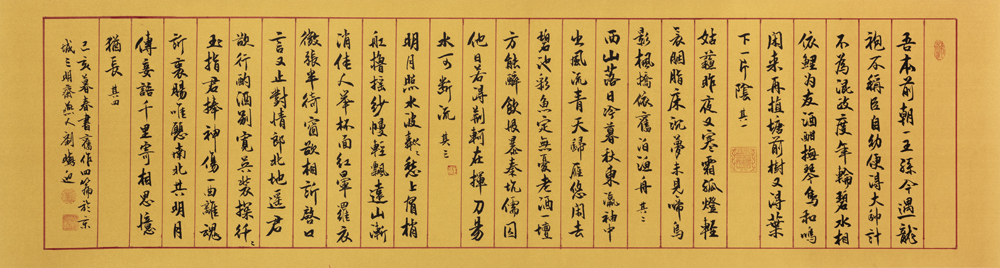 吾本前朝一王孫今遇一龍
袍不稱臣自幼便得大神計
不為混政度年輪碧水相
依鯉為友酒酣撫琴鳥和鳴
閑來再植塘前樹又得葉
下一片陰 其一
姑蘇昨夜又寒霜孤燈輕
衾胭脂床沉夢未見啼烏
影楓橋依舊泊漁舟 其二
西山落日冷暮秋東瀛神中
出風流青天歸雁悠閑去
碧池彩魚定無憂老酒一壇
方能醉飲恨暴秦坑儒囚
他日若得荊軻在揮刀易
水可斷流 其三
明月照水波愁上眉梢
舡櫓搖紗幔輕飄遠山漸
消佳人舉杯面紅暈羅衣
微張半倚窗欲相訴啓口
言又止對情郎北地遙君
欲行酌酒別寬
玉指君捧神傷一曲離魂
訴衷腸唯應南北共明月
傳妾語千里寄相思憶
猶長 其四
己亥暮春書舊作四篇於京
城三明齋燕人劉